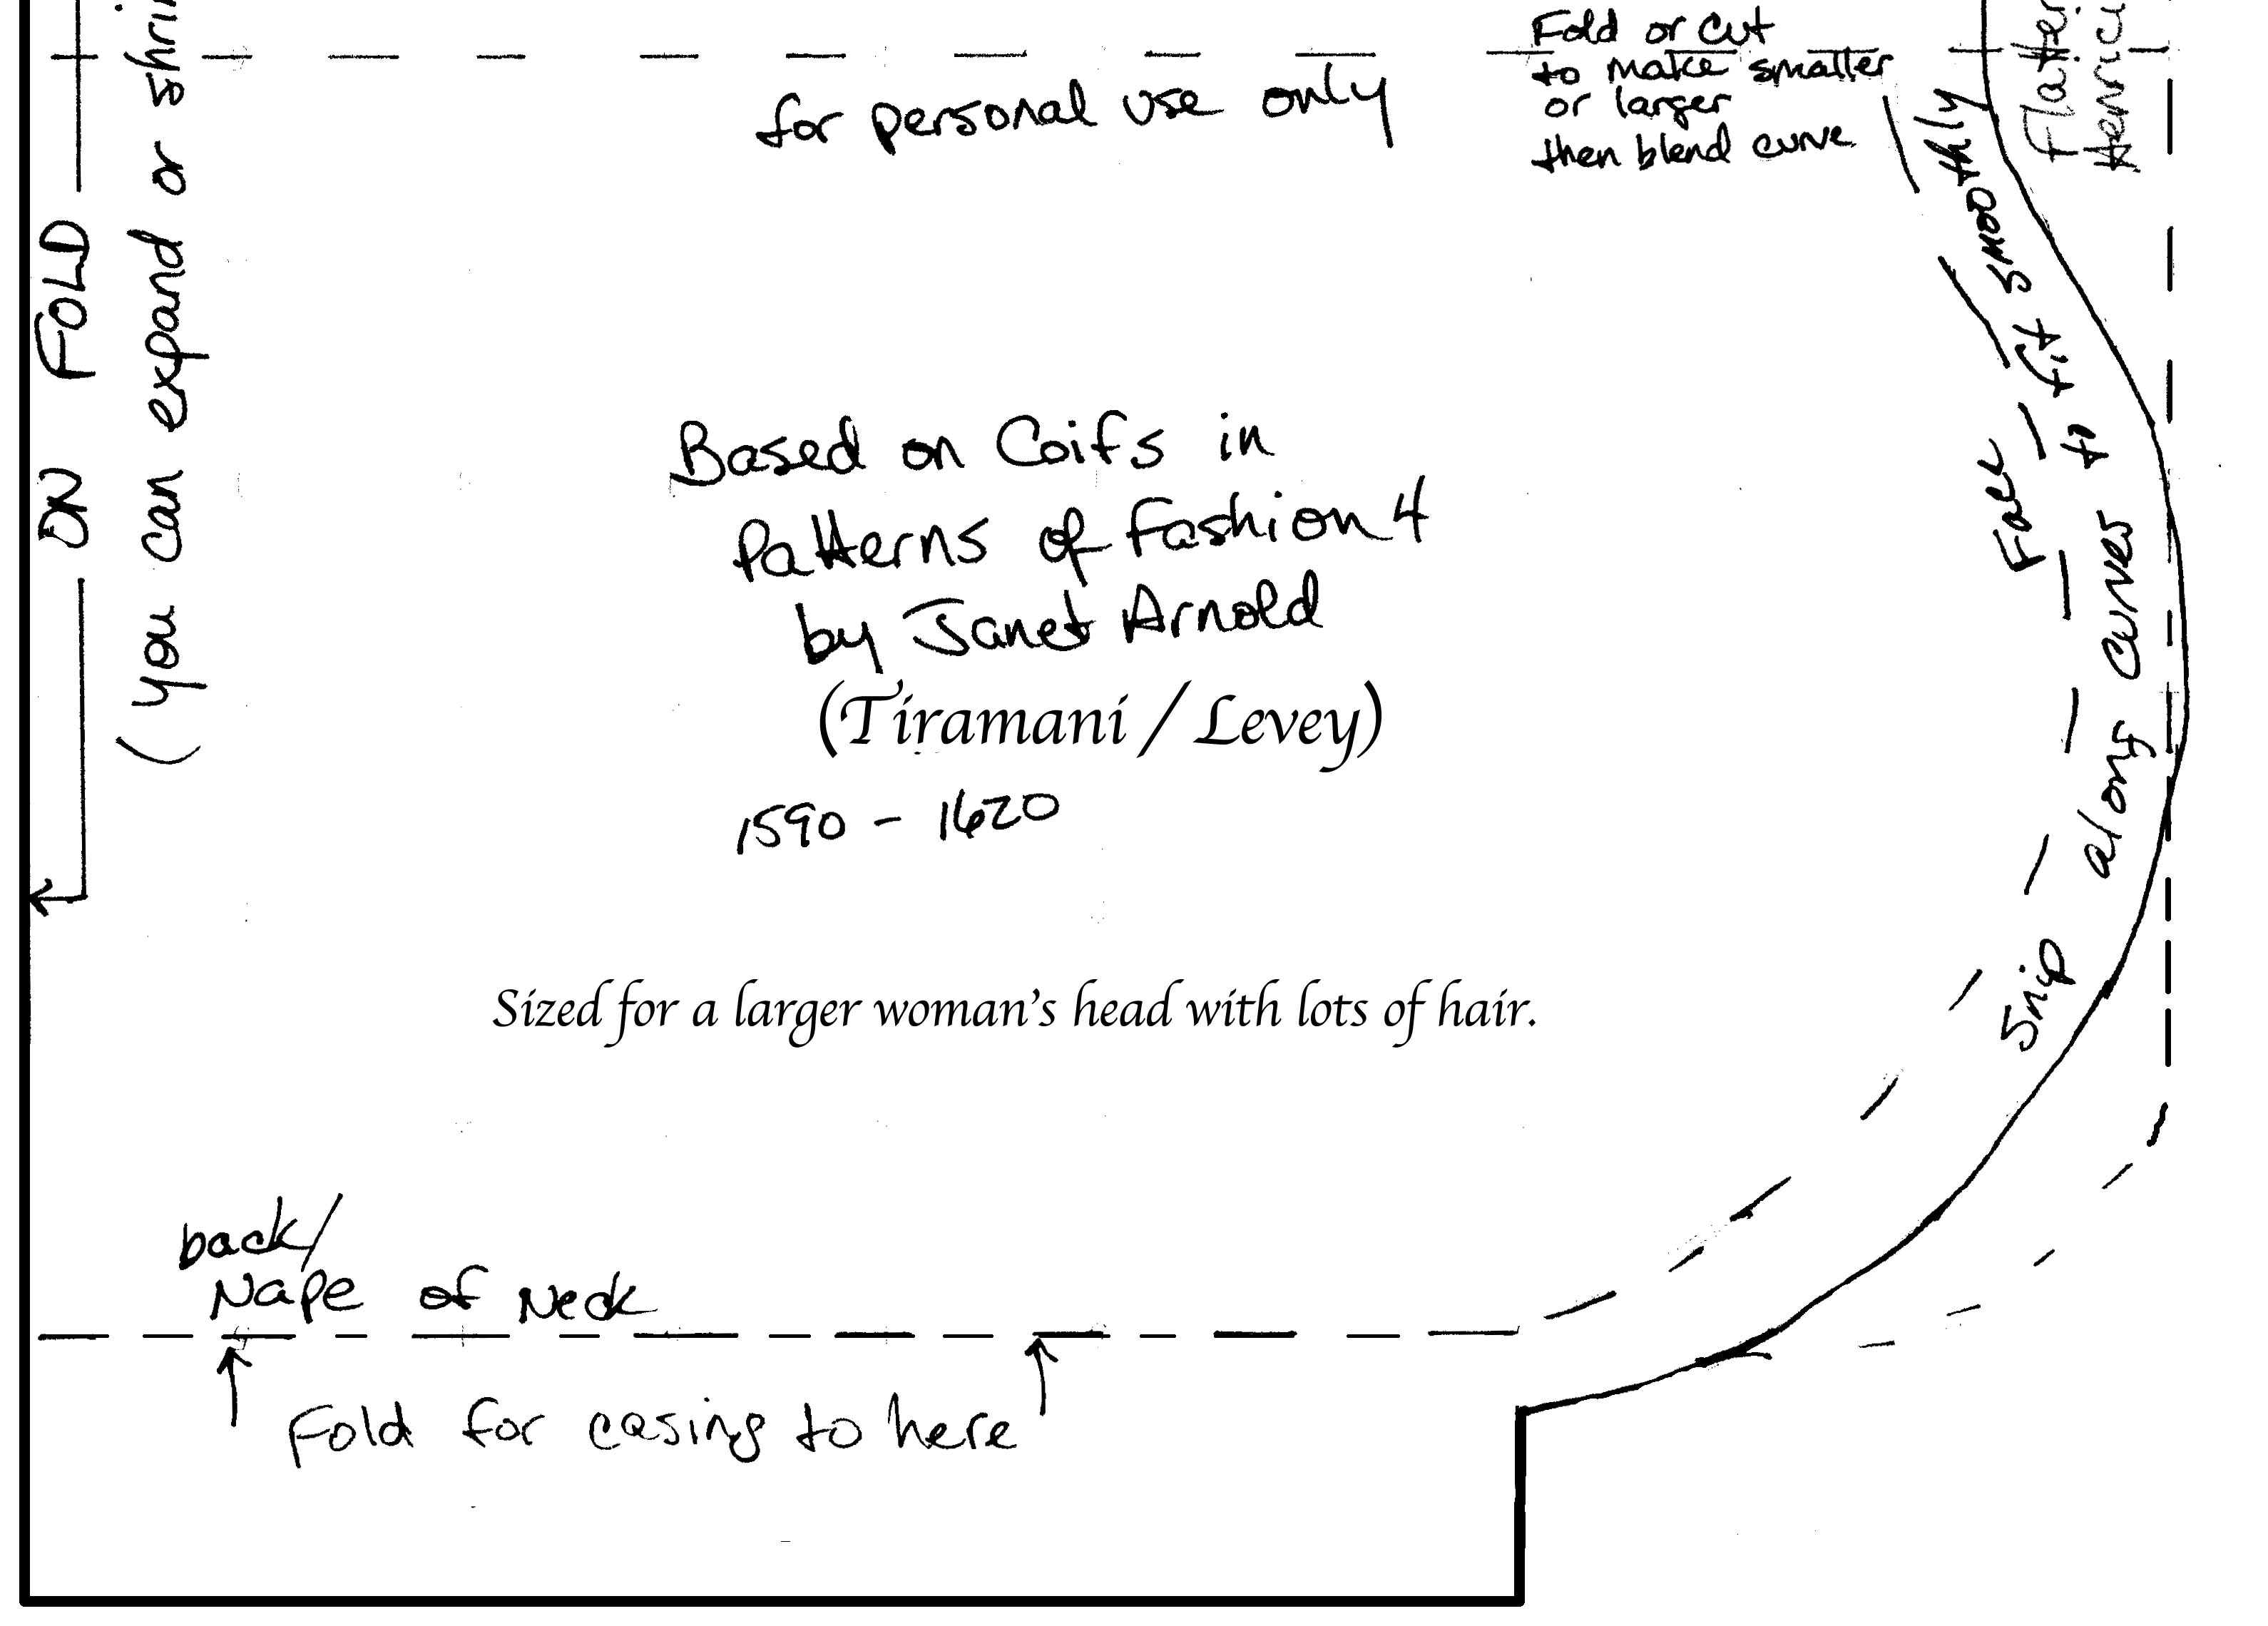 Fold or cut
to make smaller
or larger
then blend curve
for personal use only
ON FOLD
(you can expand or
Based on Coifs in
Patterns of Fashion 4
by Janet Arnold
(Tiramani / Levey)
1590 - 1620
Sized for a larger woman's head with lots of hair.
Face
Snip along curves to fit smoothly
back/
Nape of Neck
Fold for casing to here